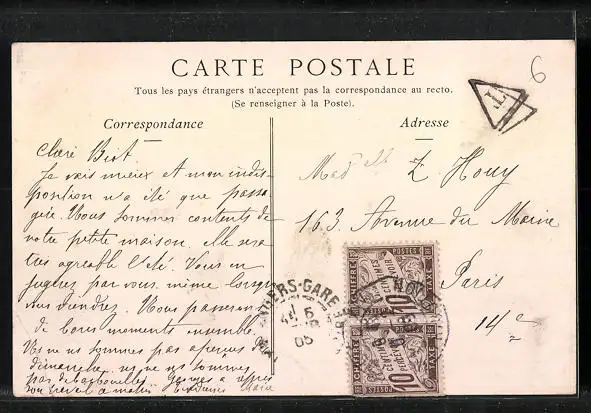 CARTE POSTALE
Tous les pays étrangers n'acceptent pas la correspondance au recto.
(Se renseigner à la Poste).
Correspondance
Adresse
6
T
Je vais mieux et mon indis-
position n'a été que passa-
gère. Nous sommes contents de
notre petite maison. Elle sera
très agréable l'été. Vous en
jugerez par vous même lorsque
vous viendrez. Nous passerons
de bons moments ensemble.
Ns ne ns sommes pas
dimanche, ns ne ns sommes
pas
Madelle Z. Houy
163 Avenue du Maine
Paris
14e
CHIFFRE
POSTES
TAXE
10
CENTIMES
À PERCEVOIR
CHIFFRE
POSTES
TAXE
10
CENTIMES
À PERCEVOIR
-GARE
6
05